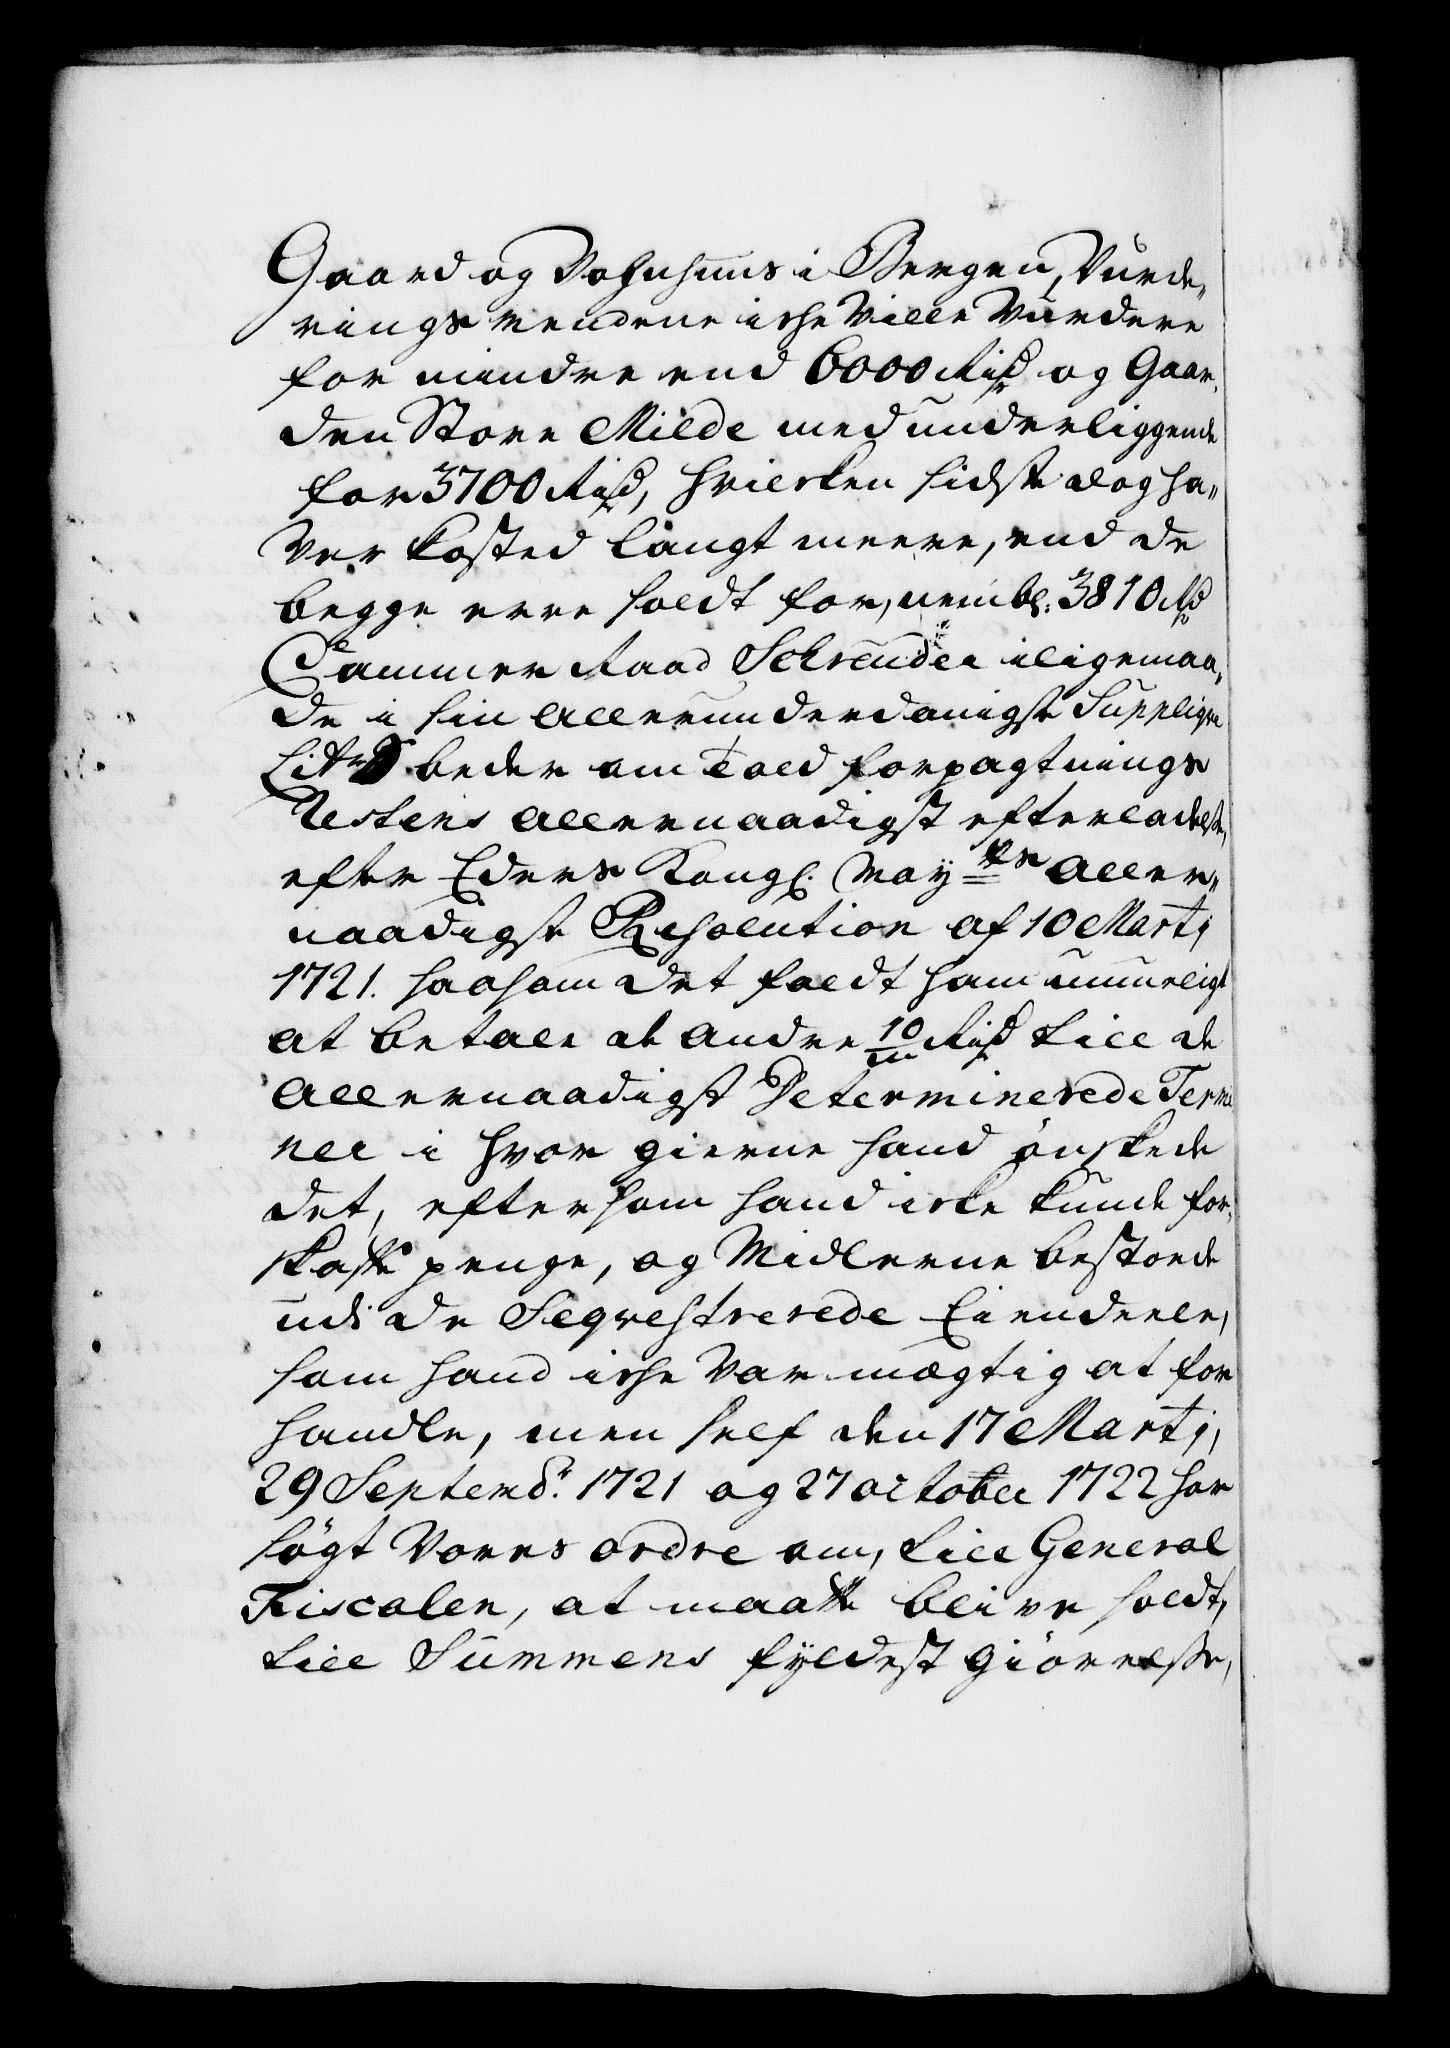 Gaard og Vohnhuus i Bergen, Vurde„
rings mendene iche Ville Vurdere
for mindre end 6000 Rixd og Gaar„
den Store Milde med underliggende
for 3700 Rixd, hvilcken sidste dog ha„
Ver kosted langt meere, end de
begge ere soldt for, nembl. 3810 Rd
Cammer Raad Schreuder iligemaa„
de i sin allerunderdanigste Suppliqve
Litr D beder om Told forpagtnings
Restens allernaadigst efterladelse,
efter Eders Kongl. May=ts Aller„
naadigste Resolution af 10 Martj
1721. saasom det faldt ham umueligt
at betale de andre 10/m Rixd till de
allernaadigst Determinerede Termi
ner i hvor gierne hand ønskede
det, eftersom hand icke kunde for„
skaffe penge, og Midlerne bestoede
udi de Seqvestrerede Eiendeele,
som hand iche var mægtig at for
handle, men self den 17 Martj,
29 Septembr. 1721 og 27 October 1722 har
søgt Vores ordre om, till General
Fiscalen, at maatte blive soldt,
till Summens fyldest giørelse,